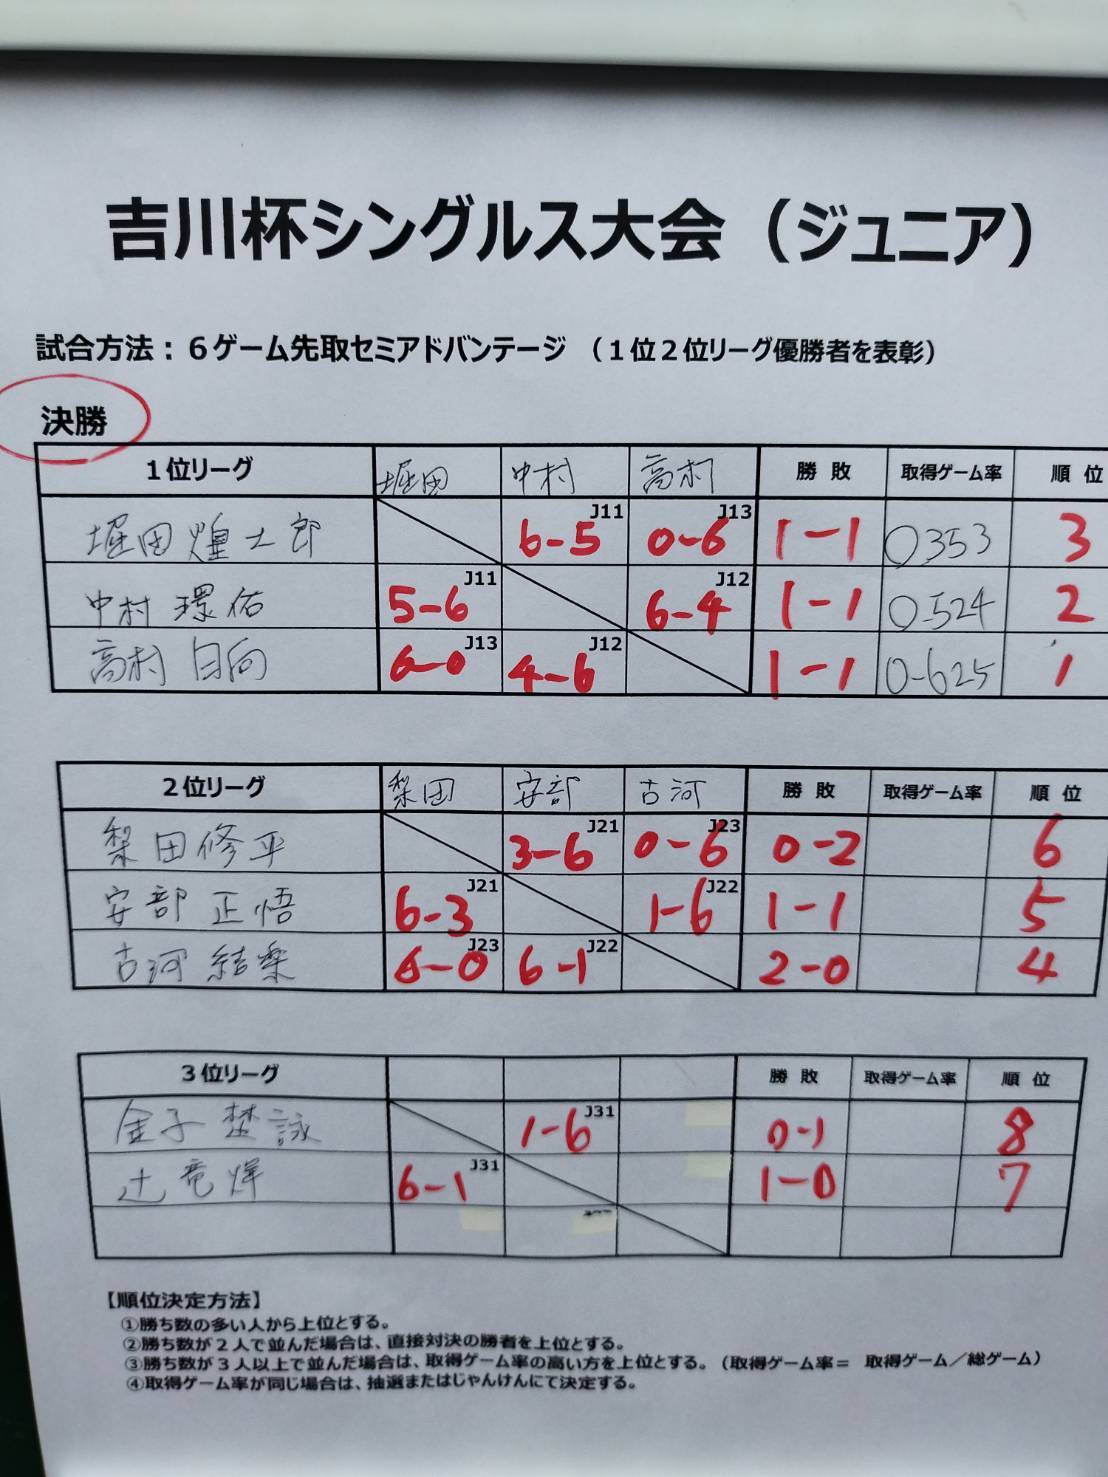 吉川杯シングルス大会（ジュニア）
試合方法：６ゲーム先取セミアドバンテージ （１位２位リーグ優勝者を表彰）
決勝
１位リーグ 堀田 中村 高村 勝敗 取得ゲーム率 順位
堀田煌士郎 J11 6-5 J13 0-6 1-1 0.353 3
中村環佑 J11 5-6 J12 6-4 1-1 0.524 2
高村日向 J13 6-0 J12 4-6 1-1 0.625 1
２位リーグ 梨田 安部 古河 勝敗 取得ゲーム率 順位
梨田修平 J21 3-6 J23 0-6 0-2 6
安部正悟 J21 6-3 J22 1-6 1-1 5
古河結楽 J23 6-0 J22 6-1 2-0 4
３位リーグ 勝敗 取得ゲーム率 順位
金子埜詠 J31 1-6 0-1 8
辻竜輝 J31 6-1 1-0 7
【順位決定方法】
①勝ち数の多い人から上位とする。
②勝ち数が２人で並んだ場合は、直接対決の勝者を上位とする。
③勝ち数が３人以上で並んだ場合は、取得ゲーム率の高い方を上位とする。（取得ゲーム率＝ 取得ゲーム／総ゲーム）
④取得ゲーム率が同じ場合は、抽選またはじゃんけんにて決定する。